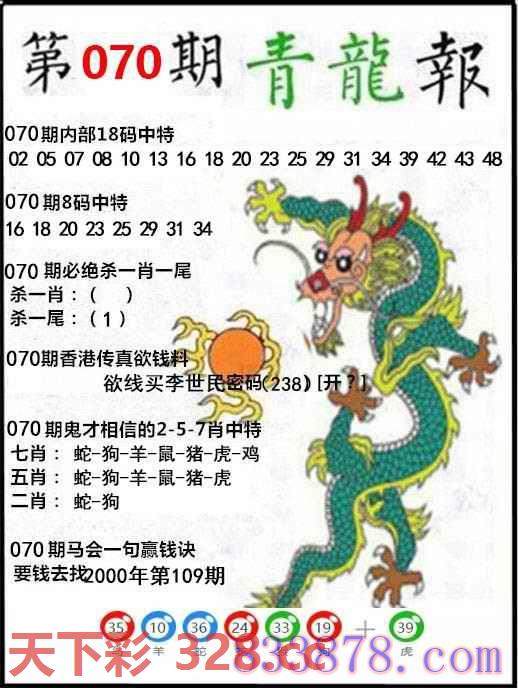 第070期青龍報
070期内部18码中特
02 05 07 08 10 13 16 18 20 23 25 29 31 34 39 42 43 48
070期8码中特
16 18 20 23 25 29 31 34
070期必绝杀一肖一尾
杀一肖：（ ）
杀一尾：（1）
070期香港传真欲钱料
欲线买李世民密码(238)[开?]
070期鬼才相信的2-5-7肖中特
七肖：蛇-狗-羊-鼠-猪-虎-鸡
五肖：蛇-狗-羊-鼠-猪-虎
二肖：蛇-狗
070期马会一句赢钱诀
要钱去找2000年第109期
35 10 36 24 33 19 + 39
羊 蛇 虎
天下彩 833878.com